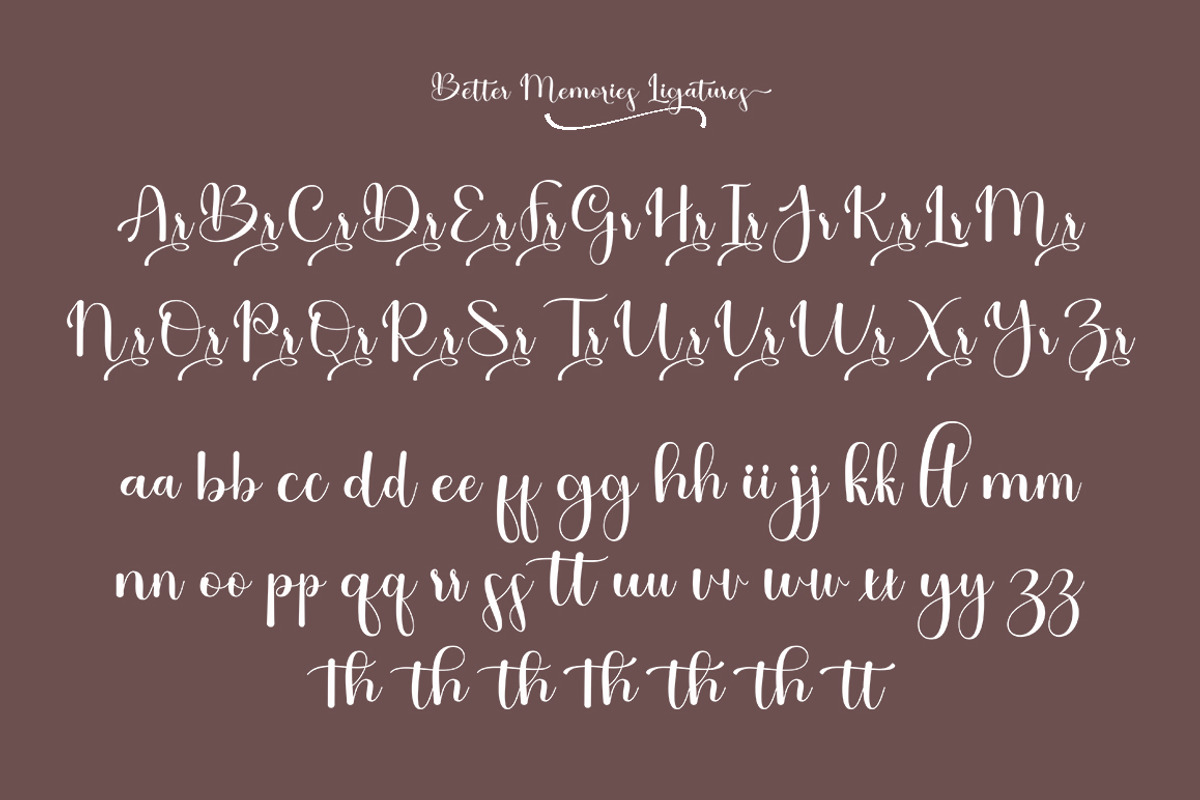 Better Memories Ligatures
Ar Br Cr Dr Er Fr Gr Hr Ir Jr Kr Lr Mr
Nr Or Pr Qr Rr Sr Tr Ur Vr Wr Xr Yr Zr
aa bb cc dd ee ff gg hh ii jj kk ll mm
nn oo pp qq rr ss tt uu vv ww xx yy zz
th th th th th th tt